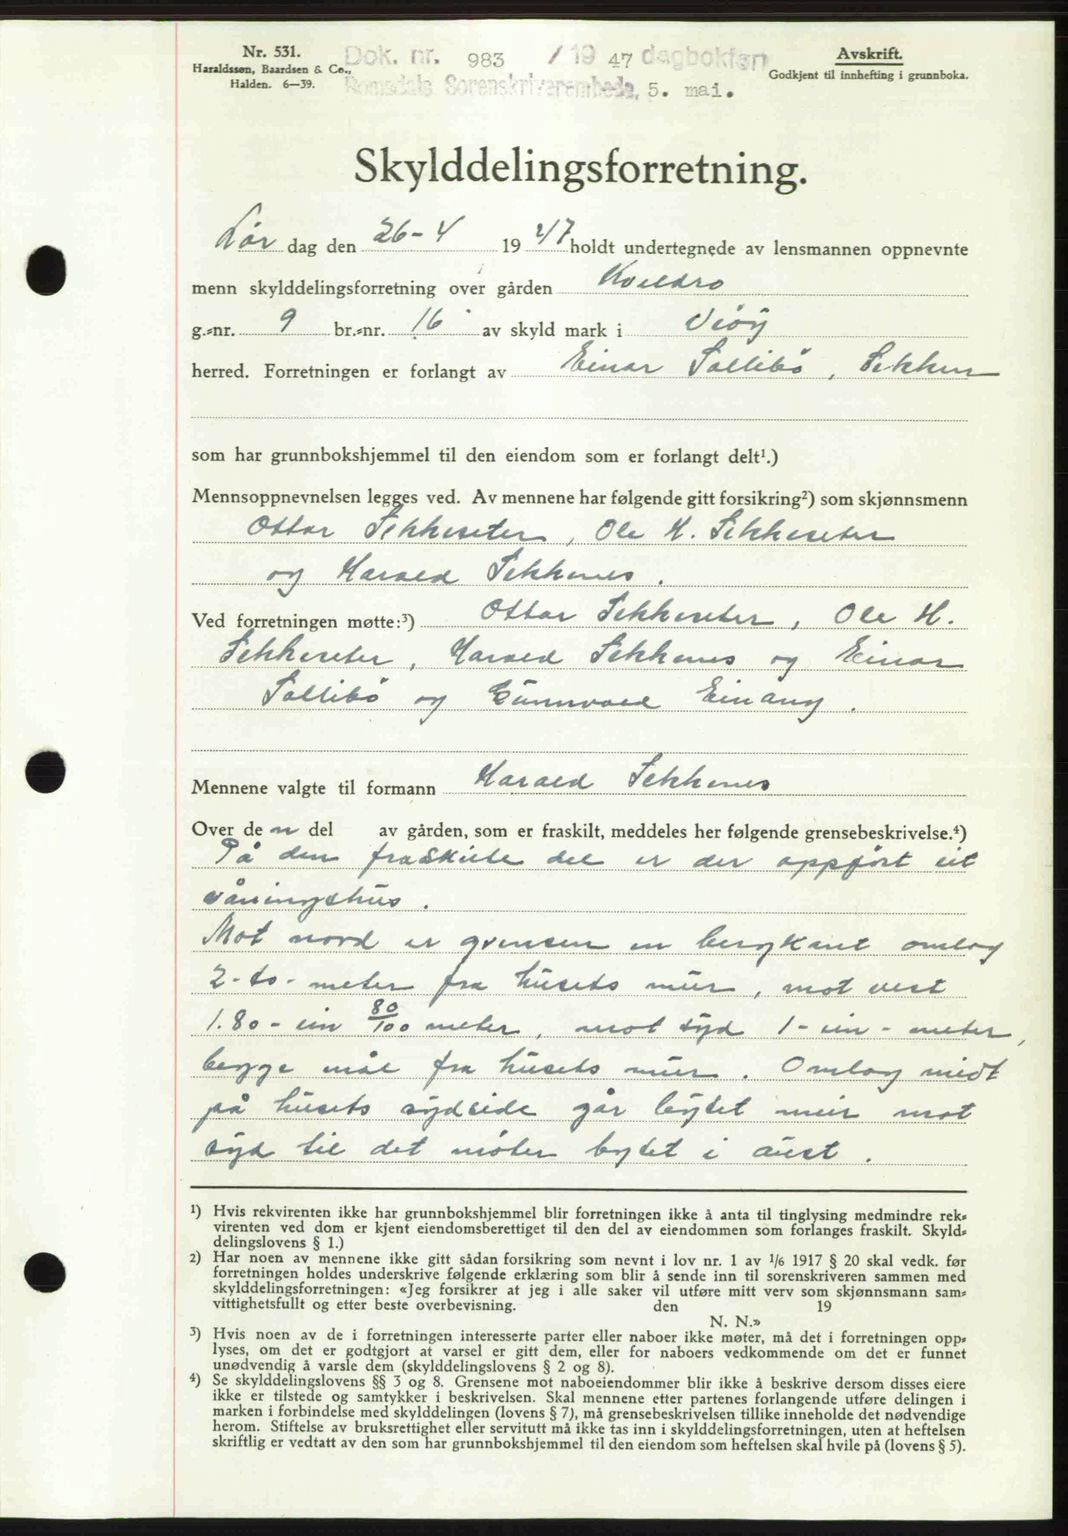 Nr. 531.
Haraldssøn, Baardsen & Co.,
Halden. 6—39.
Dok. nr. 983 / 19 47 dagbokført
Romsdals Sorenskriverembede, 5. mai.
Avskrift.
Godkjent til innhefting i grunnboka.
Skylddelingsforretning.
Lør dag den 26-4 19 47 holdt undertegnede av lensmannen oppnevnte
menn skylddelingsforretning over gården Kveldro
g.-nr. 9 br.-nr. 16 av skyld mark i Veøy
herred. Forretningen er forlangt av Einar Sollibø, Sekken
som har grunnbokshjemmel til den eiendom som er forlangt delt¹.)
Mennsoppnevnelsen legges ved. Av mennene har følgende gitt forsikring²) som skjønnsmenn
Ottar Sekkeseter, Ole H. Sekkeseter
og Harald Sekkenes.
Ved forretningen møtte:³) Ottar Sekkeseter, Ole H.
Sekkeseter, Harald Sekkenes og Einar
Sollibø og Gunnvald Einang.
Mennene valgte til formann Harald Sekkenes
Over de n del av gården, som er fraskilt, meddeles her følgende grensebeskrivelse.⁴)
På den fraskilte del er der oppført eit
våningshus.
Mot nord er grensen en bergkant omlag
2-to- meter fra husets mur, mot vest
1.80 - ein 80/100 meter, mot syd 1-ein-meter,
begge mål fra husets mur. Omlag midt
på husets sydside går bytet meir mot
syd til det møter bytet i aust.
¹) Hvis rekvirenten ikke har grunnbokshjemmel blir forretningen ikke å anta til tinglysing medmindre rek-
virenten ved dom er kjent eiendomsberettiget til den del av eiendommen som forlanges fraskilt. Skyld-
delingslovens § 1.)
²) Har noen av mennene ikke gitt sådan forsikring som nevnt i lov nr. 1 av 1/6 1917 § 20 skal vedk. før
forretningen holdes underskrive følgende erklæring som blir å sende inn til sorenskriveren sammen med
skylddelingsforretningen: «Jeg forsikrer at jeg i alle saker vil utføre mitt verv som skjønnsmann sam-
vittighetsfullt og etter beste overbevisning. den 19
N. N.»
³) Hvis noen av de i forretningen interesserte parter eller naboer ikke møter, må det i forretningen opp-
lyses, om det er godtgjort at varsel er gitt dem, eller for naboers vedkommende om det er funnet
unødvendig å varsle dem (skylddelingslovens § 2 og 8).
⁴) Se skylddelingslovens §§ 3 og 8. Grensene mot naboeiendommer blir ikke å beskrive dersom disses eiere
ikke er tilstede og samtykker i beskrivelsen. Skal mennene etter partenes forlangende utføre delingen i
marken i forbindelse med skylddelingen (lovens § 7), må grensebeskrivelsen tillike inneholde det nødvendige
herom. Stiftelse av bruksrettighet eller servitutt må ikke tas inn i skylddelingsforretningen, uten at heftelsen
skriftlig er vedtatt av den som har grunnbokshjemmel til den eiendom som heftelsen skal hvile på (lovens § 5).